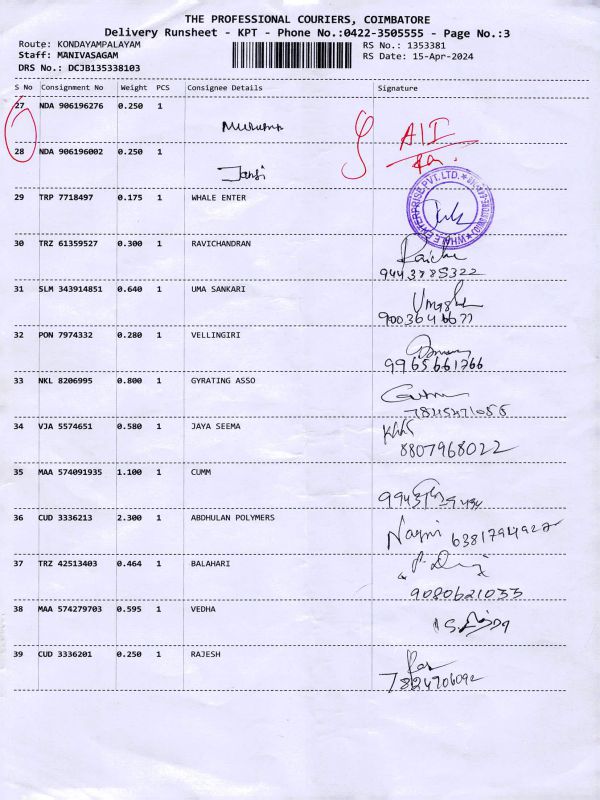 THE PROFESSIONAL COURIERS, COIMBATORE
Delivery Runsheet - KPT - Phone No.:0422-3505555 - Page No.:3
Route: KONDAYAMPALAYAM
RS No.: 1353381
Staff: MANIVASAGAM
RS Date: 15-Apr-2024
DRS No.: DCJB135338103
S No Consignment No Weight PCS Consignee Details Signature
27 NDA 906196276 0.250 1
28 NDA 906196002 0.250 1
29 TRP 7718497 0.175 1 WHALE ENTER
WHALE ENTERPRISE PVT. LTD.
30 TRZ 61359527 0.300 1 RAVICHANDRAN
31 SLM 343914851 0.640 1 UMA SANKARI
32 PON 7974332 0.280 1 VELLINGIRI
9965661766
33 NKL 8206995 0.800 1 GYRATING ASSO
34 VJA 5574651 0.580 1 JAYA SEEMA
8807968022
35 MAA 574091935 1.100 1 CUMM
36 CUD 3336213 2.300 1 ABDHULAN POLYMERS
37 TRZ 42513403 0.464 1 BALAHARI
9080621033
38 MAA 574279703 0.595 1 VEDHA
39 CUD 3336201 0.250 1 RAJESH
7824706092